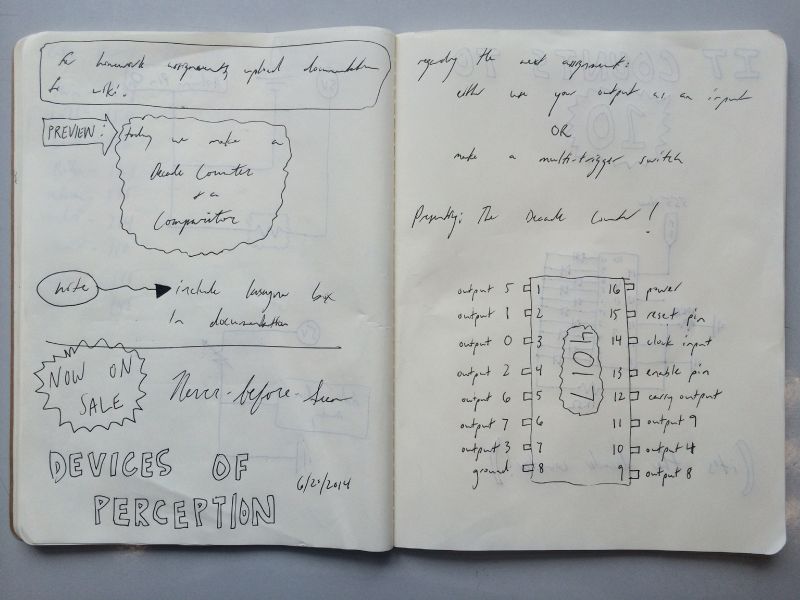 for homework assignments, upload documentation
to wiki.
PREVIEW:
today we make a
Decade Counter
& a
Comparitor
note
include lasagna box
in documentation
NOW ON
SALE
Never-before-seen
DEVICES OF
PERCEPTION
regarding the next assignment:
either use your output as an input
OR
make a multi-trigger switch
Presenting: The Decade Counter!
output 5 1 16 power
output 1 2 15 reset pin
output 0 3 14 clock input
output 2 4 13 enable pin
output 6 5 12 carry output
output 7 6 11 output 9
output 3 7 10 output 4
ground 8 9 output 8
4017
IT COUNTS TO
10